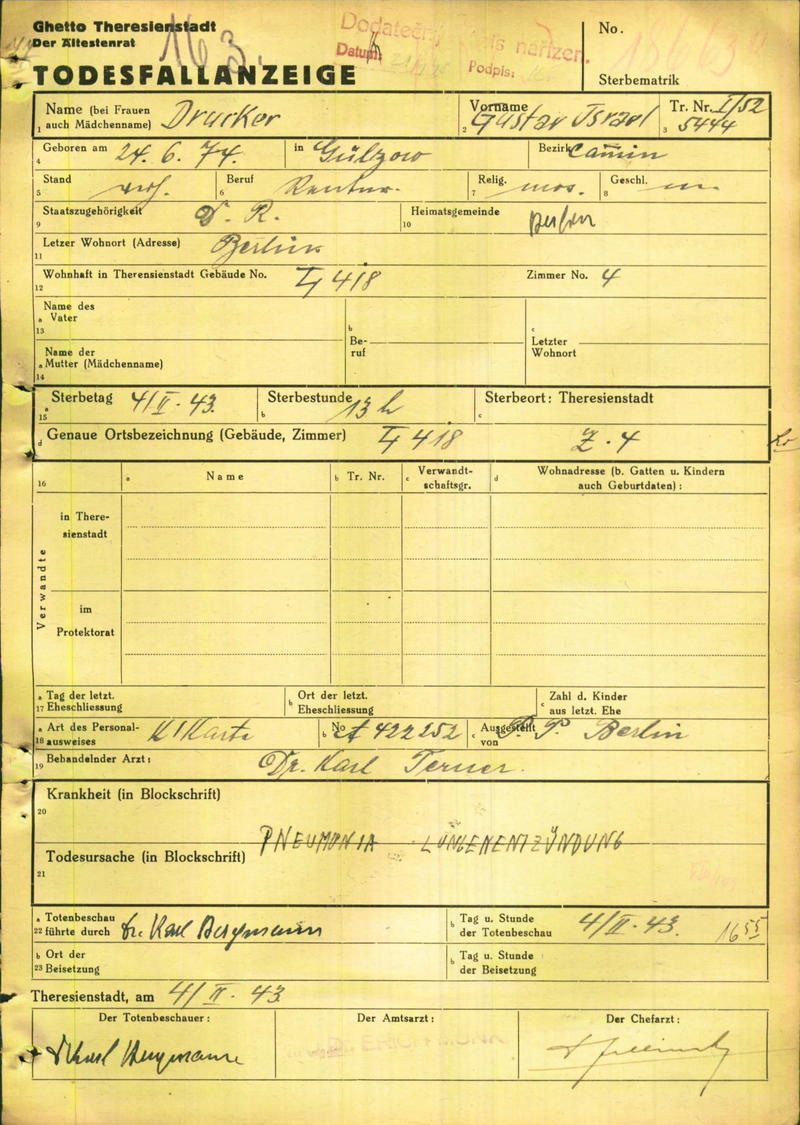 Ghetto Theresienstadt
Der Ältestenrat
163.
Dodatečný nařízen.
Datum:
Podpis:
TODESFALLANZEIGE
No.
Sterbematrik
1 Name (bei Frauen auch Mädchenname) Drucker
2 Vorname Gustav Israel
3 Tr. Nr. I/52 5444
4 Geboren am 24. 6. 74. in Gülzow Bezirk Camin
5 Stand verh. 6 Beruf Rentner. 7 Relig. mos. 8 Geschl. m.
9 Staatszugehörigkeit D. R. 10 Heimatsgemeinde Berlin
11 Letzer Wohnort (Adresse) Berlin
12 Wohnhaft in Theresienstadt Gebäude No. 418 Zimmer No. 4
13 a Name des Vater b Beruf c Letzter Wohnort
14 a Name der Mutter (Mädchenname)
15 a Sterbetag 4/II. 43. b Sterbestunde 13 h c Sterbeort: Theresienstadt
d Genaue Ortsbezeichnung (Gebäude, Zimmer) 418 Z. 4
16 a Name b Tr. Nr. c Verwandtschaftsgr. d Wohnadresse (b. Gatten u. Kindern auch Geburtdaten):
Verwandte
in Theresienstadt
im Protektorat
17 a Tag der letzt. Eheschliessung b Ort der letzt. Eheschliessung c Zahl d. Kinder aus letzt. Ehe
18 a Art des Personalausweises K/Karte b No A 422252 c Ausgestellt von P. P. Berlin
19 Behandelnder Arzt: Dr. Karl Terner.
20 Krankheit (in Blockschrift)
PNEUMONIA LUNGENENTZÜNDUNG
21 Todesursache (in Blockschrift)
22 a Totenbeschau führte durch Dr. Karl Bergmann b Tag u. Stunde der Totenbeschau 4/II. 43. 16 55
23 b Ort der Beisetzung b Tag u. Stunde der Beisetzung
Theresienstadt, am 4/II. 43
Der Totenbeschauer: Der Amtsarzt: Der Chefarzt:
Dr Karl Bergmann